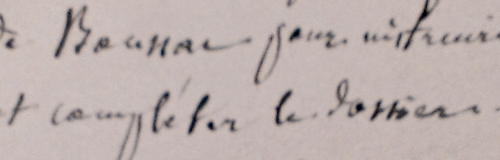 de Boussac pour instruire
et compléter le dossier.